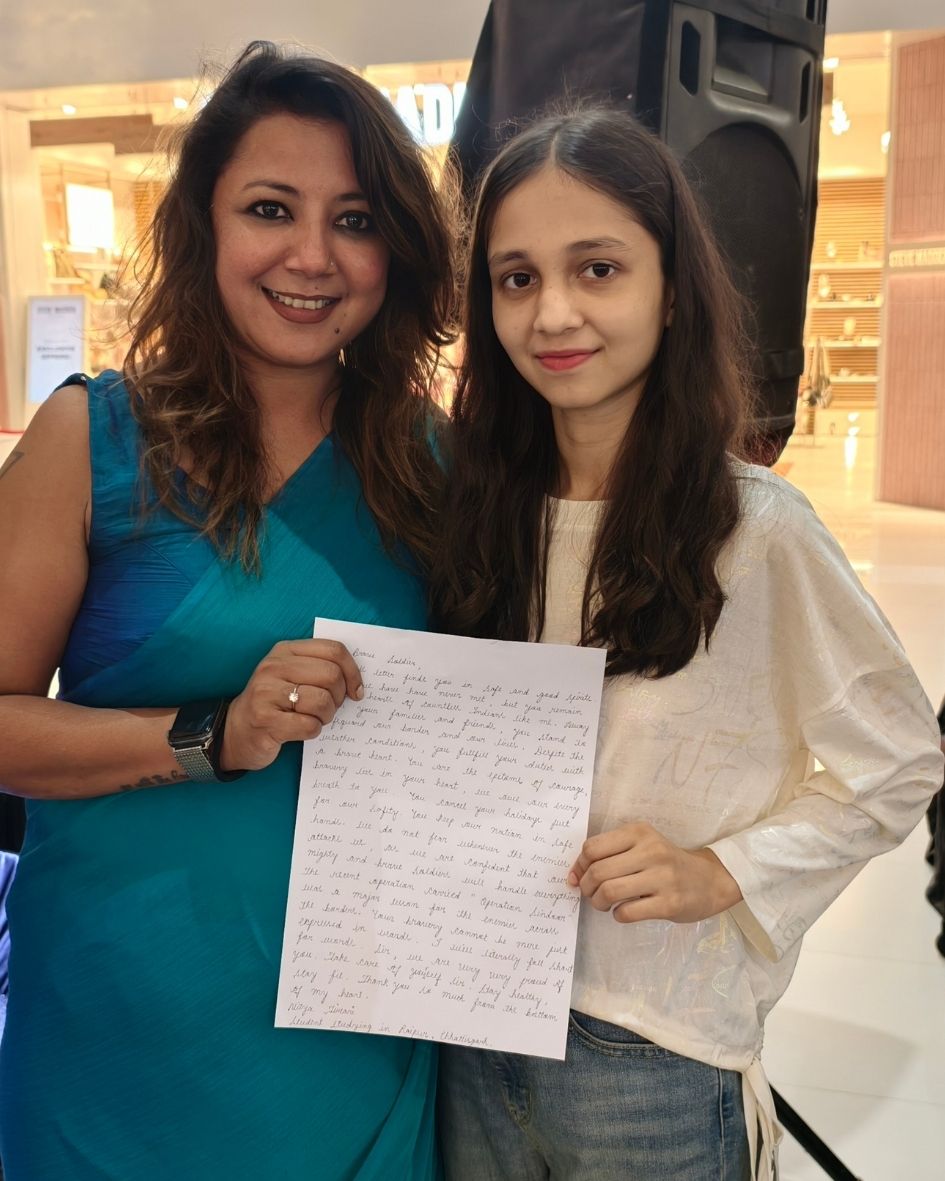 Brave Soldier,
letter finds you in safe and good spirits
we have have never met, but you remain
hearts of countless Indians like me. Away
your families and friends, you stand to
our border and our lives. Despite the
weather conditions, you fulfill your duties with
a brave heart. You are the epitome of courage,
bravery lies in your heart, we owe our every
breath to you. You cancel your holidays just
for our safety. You keep our nation in safe
hands. We do not fear whenever the enemies
attacks us, as we are confident that our
mighty and brave soldiers will handle everything
The recent operation carried "Operation Sindoor"
was a major lesson for the enemies across
the borders. Your bravery cannot be mere just
expressed in words. I will literally fall short
for words. Sir, we are very very proud of
you. Take care of yourself sir. Stay healthy,
stay fit. Thank you so much from the bottom
of my heart.
Nitya Tiwari
Student studying in Raipur, Chhattisgarh.
STEVE MADDEN